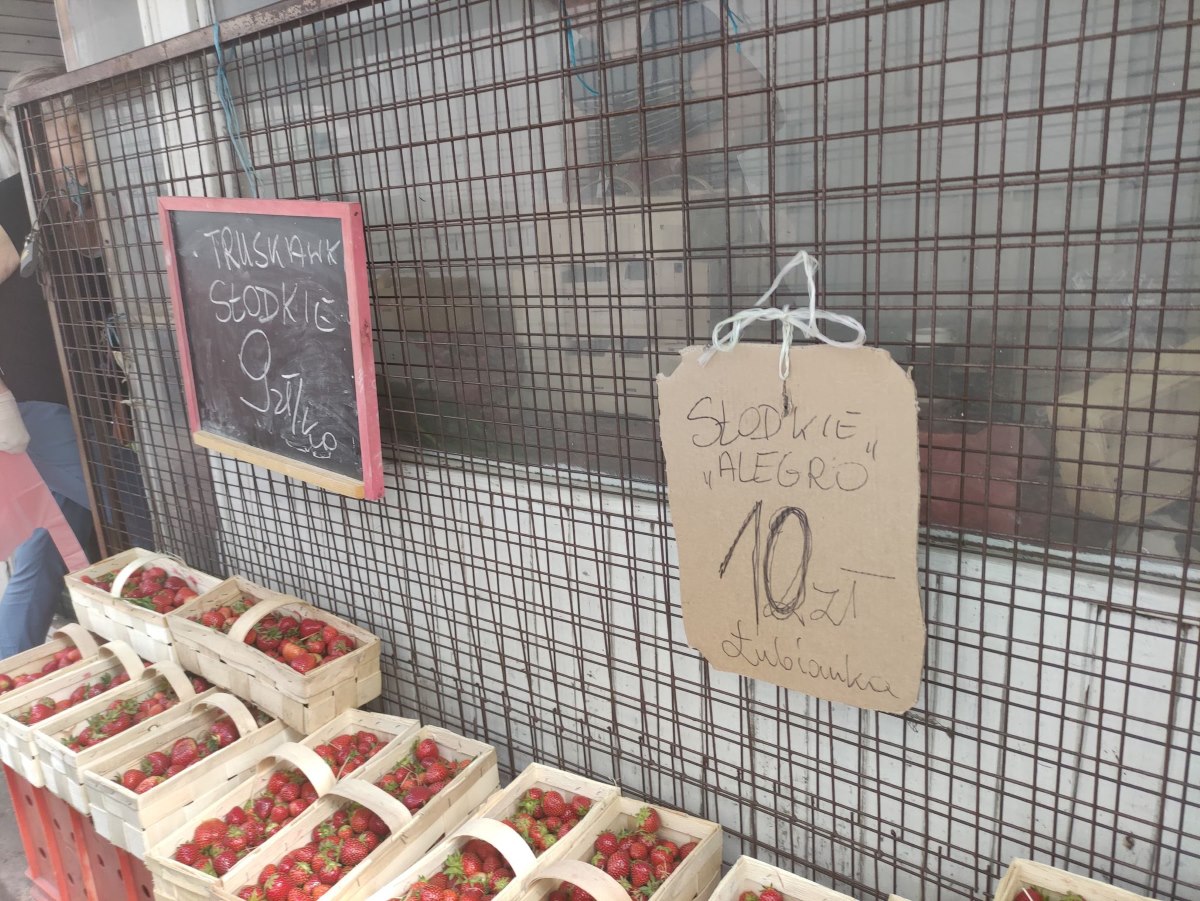 TRUSKAWK
SŁODKIE
9zł/kg
SŁODKIE
„ALEGRO”
10 zł
Łubianka